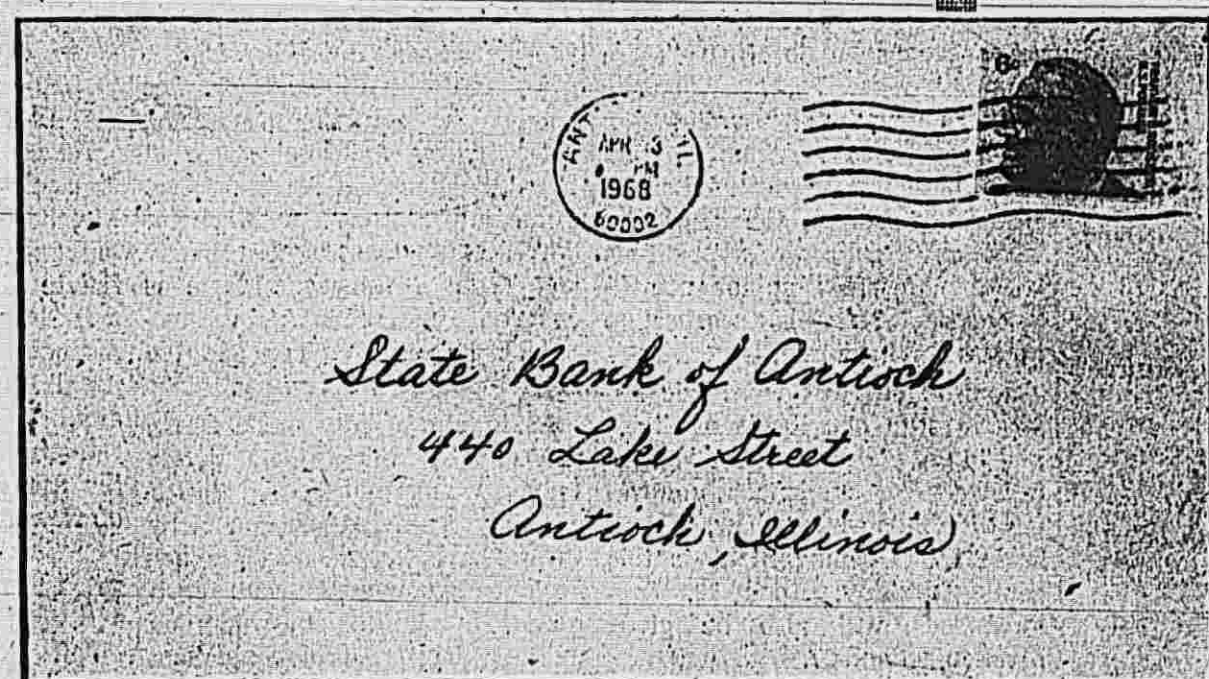 6¢
ANT IL
APR 3
PM
1968
60002
State Bank of Antioch
440 Lake Street
Antioch, Illinois